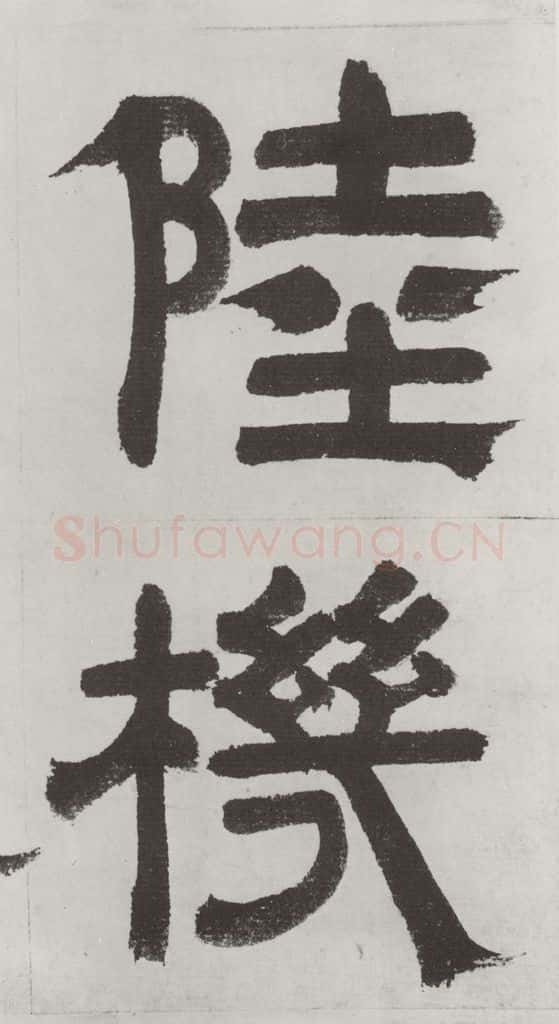 陸
機
Shufawang.CN